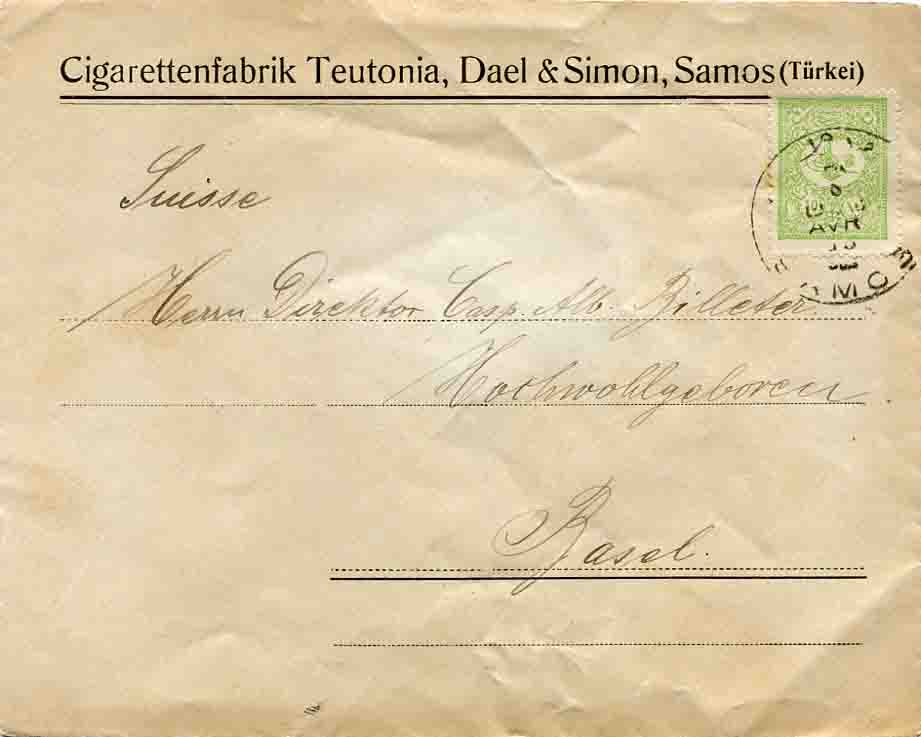 Cigarettenfabrik Teutonia, Dael & Simon, Samos (Türkei)
Suisse
Herrn Direktor Casp. Alb. Billeter
Hochwohlgeboren
Basel.
AVR